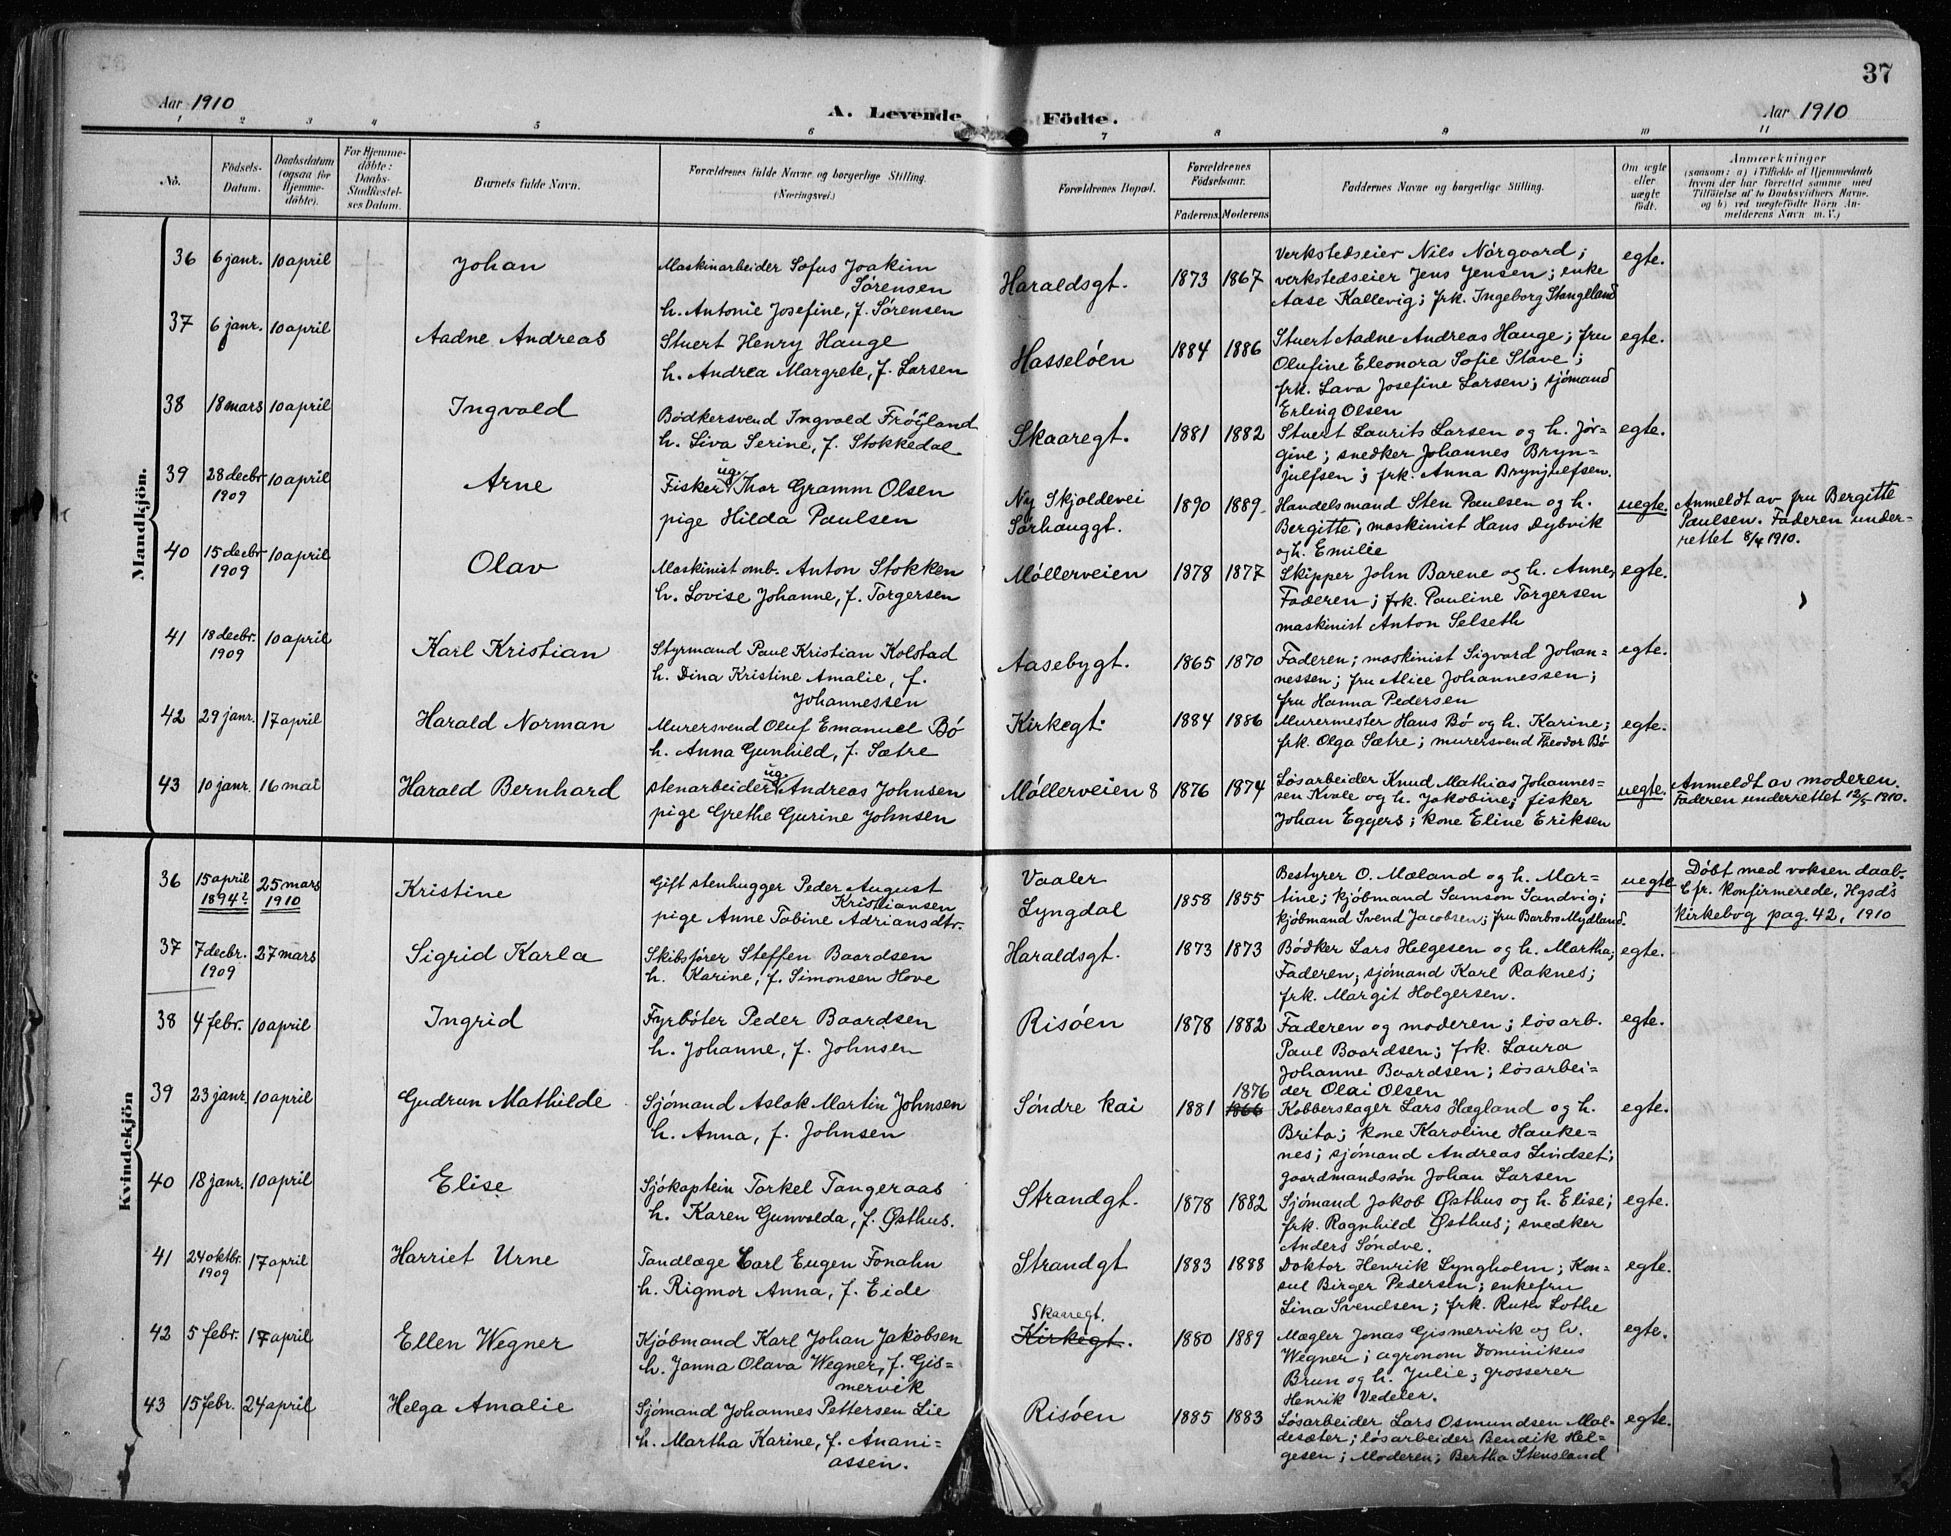 37
Aar 1910
A. Levende Födte.
Aar 1910
1 2 3 4 5 6 7 8 9 10 11
No.
Födsels-
Datum.
Daabsdatum
(ogsaa for
Hjemme-
döbte).
For Hjemme-
döbte:
Daabs-
Stadfæstel-
ses Datum.
Barnets fulde Navn.
Forældrenes fulde Navne og borgerlige Stilling.
(Næringsvei.)
Forældrenes Bopæl.
Forældrenes
Födselsaar.
Faderens. Moderens.
Faddernes Navne og borgerlig Stilling.
Om ægte
eller
uægte
födt.
Anmærkninger
(saasom: a) i Tilfælde af Hjemmedaab
hvem der har forrettet samme med
Tilföielse af to Daabsvidners Navne.
og b) ved uægtefödte Börn An-
melderens Navn m. V.)
Mandkjön.
36 6 janr. 10 april Johan
Maskinarbeider Sofus Joakim
Sørensen
h. Antonie Josefine, f. Sørensen
Haraldsgt. 1873 1867
Verkstedseier Nils Nørgaard;
verkstedseier Jens Jensen; enke
Aase Kallevig; frk. Ingeborg Stangeland
egte.
37 6 janr. 10 april Aadne Andreas
Stuert Henry Hauge
h. Andrea Margrete, f. Larsen
Hasseløen 1884 1886
Stuert Aadne Andreas Hauge; fru
Olufine Eleonora Sofie Stave;
frk. Lava Josefine Larsen; sjømand
Erling Olsen
egte.
38 18 mars 10 april Ingvald
Bødkersvend Ingvald Frøyland
h. Siva Serine, f. Stokkedal
Skaaregt. 1881 1882
Stuert Laurits Larsen og h. Jør-
gine; snedker Johannes Bryn-
julfsen; frk. Anna Brynjulfsen.
egte.
39 28 decbr 1909 10 april Arne
Fisker ug. Thor Gramm Olsen
pige Hilda Paulsen
Ny Skjoldevei
Sørhauggt.
1890 1889
Handelsmand Sten Paulsen og h.
Bergitte; maskinist Hans Dybvik
og h. Emilie
uegte.
Anmeldt av fru Bergitte
Paulsen. Faderen under-
rettet 8/4 1910.
40 15 decbr 1909 10 april Olav
Maskinist omb. Anton Stokken
h. Lovise Johanne, f. Torgersen
Møllerveien 1878 1877
Skipper John Barene og h. Anne,
Faderen; frk. Pauline Torgersen
maskinist Anton Selseth
egte.
41 18 decbr. 1909 10 april Karl Kristian
Styrmand Paul Kristian Kolstad
h. Dina Kristine Amalie, f.
Johannessen
Aasebygt. 1865 1870
Faderen; maskinist Sigvard Johan-
nessen; fru Alice Johannessen;
fru Hanna Pedersen
egte.
42 29 janr. 17 april Harald Norman
Murersvend Oluf Emanuel Bø
h. Anna Gunhild, f. Sætre
Kirkegt. 1884 1886
Murermester Hans Bø og h. Karine;
frk. Olga Sætre; murersvend Theodor Bø
egte.
43 10 janr. 16 mai Harald Bernhard
stenarbeider ug. Andreas Johnsen
pige Grethe Gurine Johnsen
Møllerveien 8 1876 1874
Løsarbeider Knud Mathias Johannes-
sen Kvale og h. Jakobine; fisker
Johan Eggers; kone Eline Eriksen
uegte.
Anmeldt av moderen.
Faderen underrettet 12/5 1910.
Kvindekjön
36 15 april 1894? 25 mars 1910 Kristine
Gift stenhugger Peder August
Kristiansen
pige Anne Tobine Adriansdtr.
Vaaler
Lyngdal
1858 1855
Bestyrer O. Mæland og h. Mar-
tine; kjøbmand Samson Sandvig;
kjøbmand Svend Jacobsen; fru Barbro Mydland.
uegte
Døbt med voksen daab.
Cfr. konfirmerede, Hgsd's
kirkebog pag. 42, 1910
37 7 decbr. 1909 27 mars Sigrid Karla
Skibsfører Steffen Baardsen
h. Karine, f. Simonsen Hove
Haraldsgt. 1873 1873
Bødker Lars Helgesen og h. Martha;
Faderen; sjømand Karl Raknes;
frk. Margit Holgersen.
egte.
38 4 febr. 10 april Ingrid
Fyrbøter Peder Baardsen
h. Johanne, f. Johnsen
Risøen 1878 1882
Faderen og moderen; løsarb.
Paul Baardsen; frk. Laura
Johanne Baardsen; løsarbei-
der Olai Olsen
egte.
39 23 janr. 10 april Gudrun Mathilde
Sjømand Aslak Martin Johnsen
h. Anna, f. Johnsen
Søndre kai 1881 1876 1866
Kobberslager Lars Hægland og h.
Brita; kone Karoline Hauke-
nes; sjømand Andreas Lindset;
gaardmandssøn Johan Larsen
egte.
40 18 janr. 10 april Elise
Sjøkaptein Torkel Tangeraas
h. Karen Gunvalda, f. Østhus.
Strandgt. 1878 1882
Sjømand Jakob Østhus og h. Elise;
frk. Ragnhild Østhus; snedker
Anders Søndve.
egte.
41 24 oktbr. 1909 17 april Harriet Urne
Tandlæge Carl Eugen Fonahn
h. Rigmor Anna, f. Eide
Strandgt 1883 1888
Doktor Henrik Lyngholm; Kon-
sul Birger Pedersen; enkefru
Lina Svendsen; frk. Ruth Lothe
egte.
42 5 febr. 17 april Ellen Wegner
Kjøbmand Karl Johan Jakobsen
h. Janna Olava Wegner, f. Gis-
mervik
Skaaregt.
Kirkegt. 1880 1889
Mægler Jonas Gismervik og h.
Wegner; agronom Dominikus
Brun og h. Julie; grosserer
Henrik Vedeler.
egte.
43 15 febr. 24 april Helga Amalie
Sjømand Johannes Pettersen Lie
h. Martha Karine, f. Anani-
assen.
Risøen 1885 1883
Løsarbeider Lars Osmundsen Mal-
desæter; løsarbeider Bendik Hel-
gesen; Moderen; Bertha Stensland
egte.